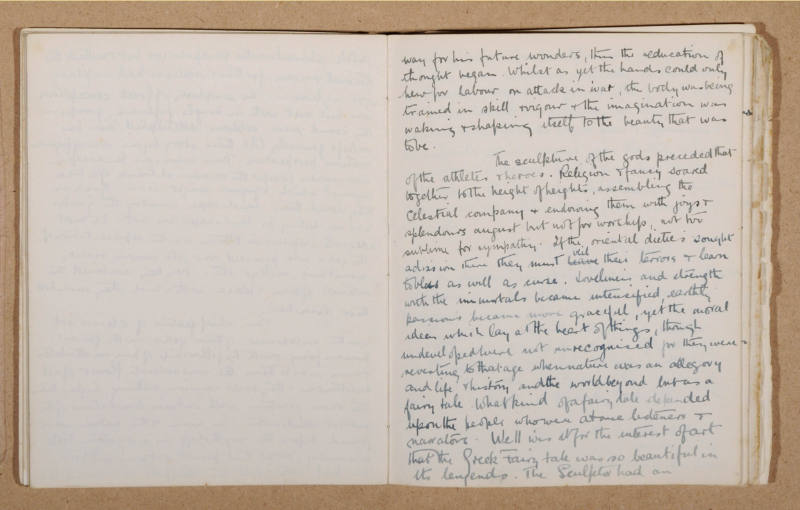 way for his future wonders, thus the education of
thought began. Whilst as yet the hands could only
hew for labour or attack in war, the body was being
trained in skill & vigour & the imagination was
waking & shaping itself to the beauty that was
to be.
The sculpture of the gods preceded that
of the athletes & heroes. Religion & fancy soared
together to the height of heights, assembling the
Celestial company & endowing them with joys &
splendours august but not for worship, not too
sublime for sympathy. If the oriental dieties sought
admission there they must veil their terrors & learn
to bless as well as curse. Loveliness and strength
with the immortals became intensified, earthly
passions became more graceful, yet the moral
ideas which lay at the heart of things, though
undeveloped were not unrecognised for they were
to that age when nature was an allegory
and life & history and the world beyond but as a
fairy tale. What kind of a fairy tale depended
upon the people who were at once listeners &
narrators. Well was it for the interest of art
that the Greek Fairy tale was so beautiful in
its legends. The Sculptor had an